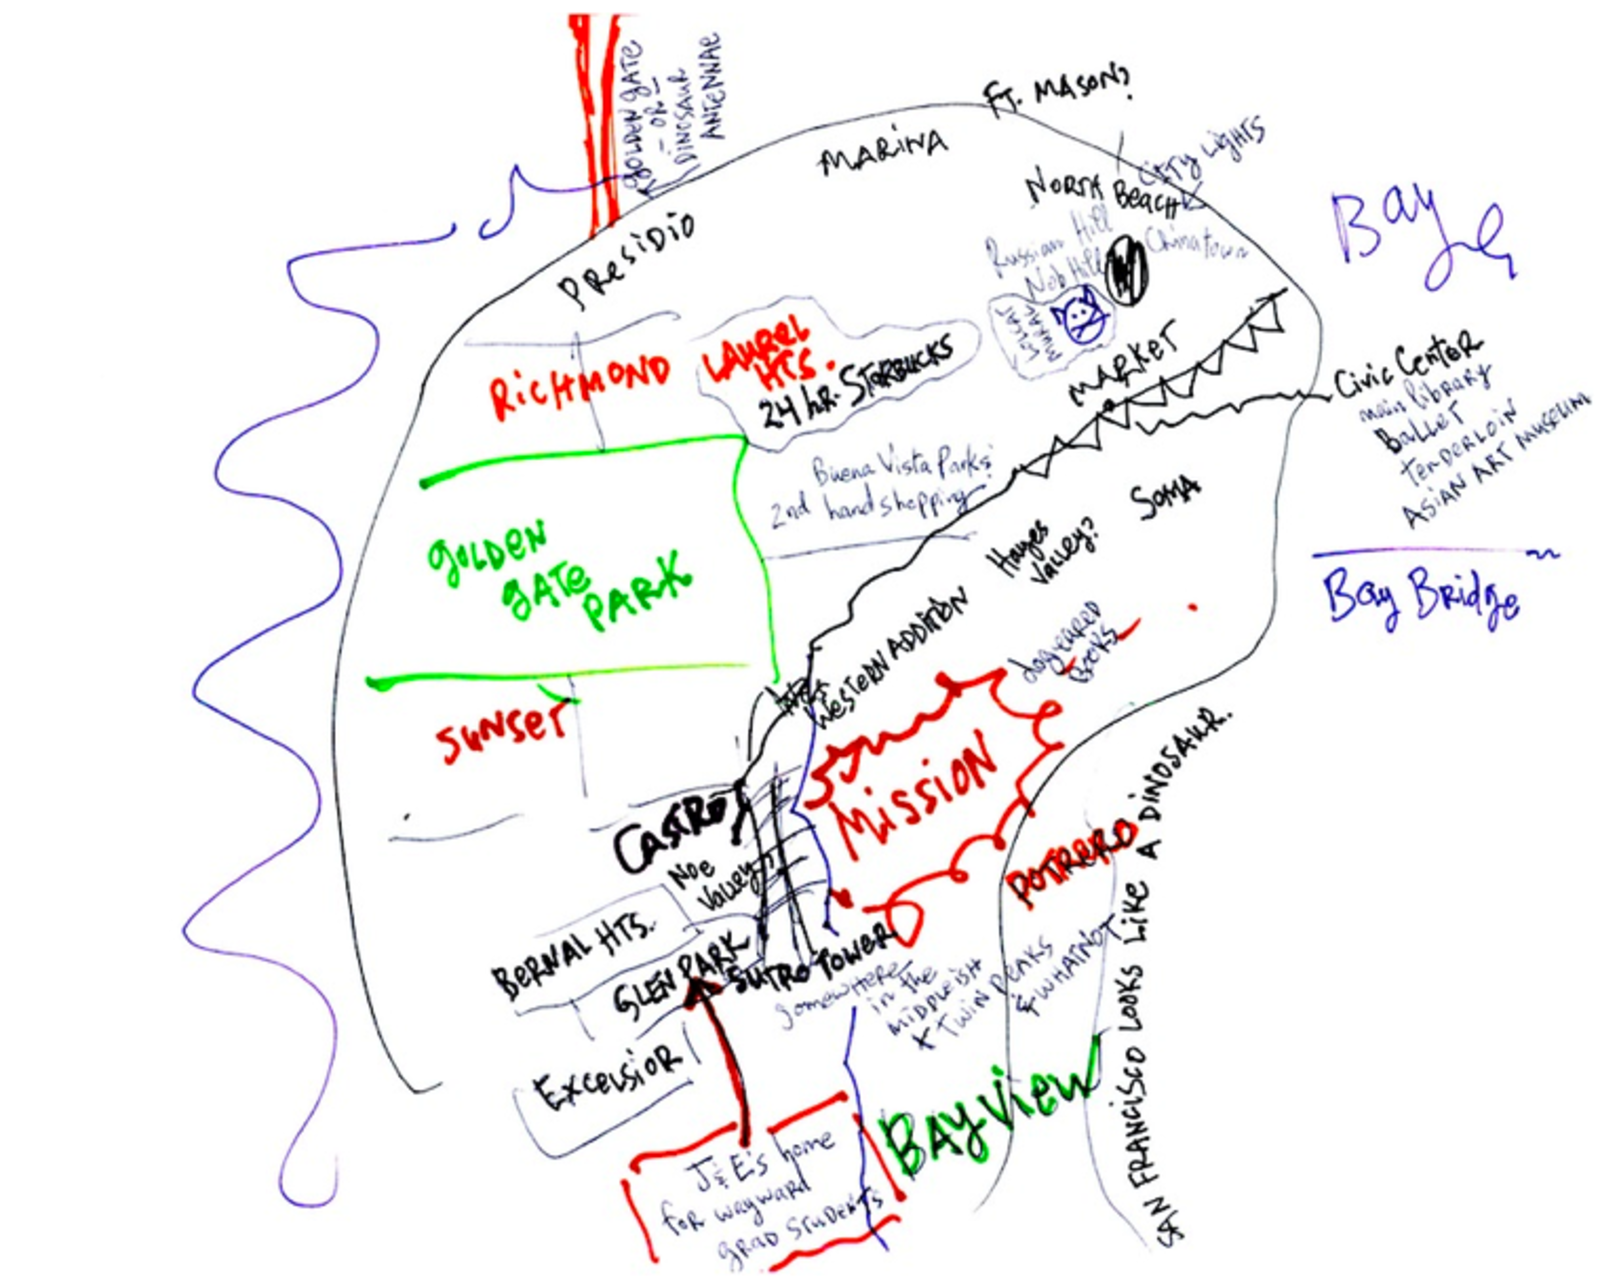 GOLDEN GATE
- OR -
DINOSAUR
ANTENNAE
FT. MASON?
MARINA
CITY LIGHTS
NORTH BEACH
Bay
PRESIDIO
Russian Hill
Chinatown
Nob Hill
LOLCAT
MURAL
RICHMOND
LAUREL
HTS.
24 hR. STARBUCKS
MARKET
Civic Center
main library
Ballet
TENDERLOIN
ASIAN ART MUSEUM
Buena Vista Parks
2nd hand shopping
SOMA
Hayes
Valley?
GOLDEN
GATE
PARK
Bay Bridge
WESTERN ADDITION
dogeared
Books
SUNSET
MISSION
CASTRO
Noe
Valley
POTRERO
BERNAL HTS.
GLEN PARK
SUTRO TOWER
somewhere
in the
MIDDLEISH
+ TWIN PEAKS
& WHATNOT
EXCELSIOR
BAYVIEW
J & E's home
for wayward
grad students
SAN FRANCISCO LOOKS LIKE A DINOSAUR.